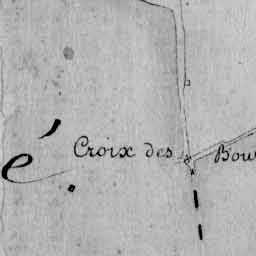 Croix des Bou
é.